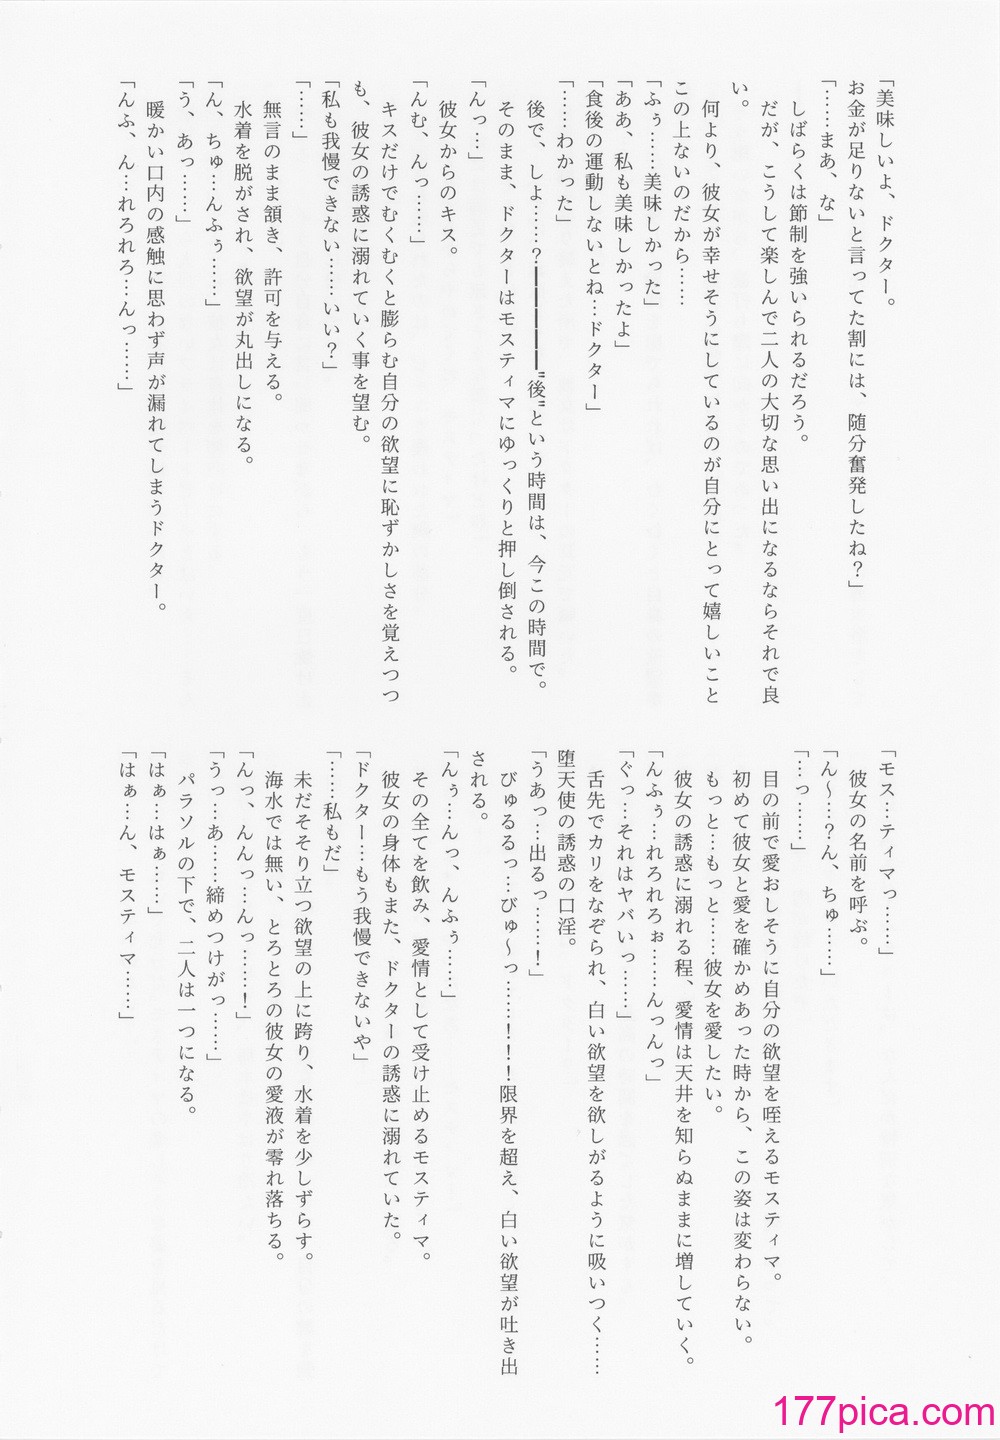 「美味しいよ、ドクター。
お金が足りないと言ってた割には、随分奮発したね？」
「……まあ、な」
しばらくは節制を強いられるだろう。
だが、こうして楽しんで二人の大切な思い出になるならそれで良
い。
何より、彼女が幸せそうにしているのが自分にとって嬉しいこと
この上ないのだから……
「ふぅ……美味しかった」
「ああ、私も美味しかったよ」
「食後の運動しないとね…ドクター」
「……わかった」
後で、しよ……？――――――〝後〟という時間は、今この時間で。
そのまま、ドクターはモスティマにゆっくりと押し倒される。
「んっ…」
彼女からのキス。
「んむ、んっ……」
キスだけでむくむくと膨らむ自分の欲望に恥ずかしさを覚えつつ
も、彼女の誘惑に溺れていく事を望む。
「私も我慢できない……いい？」
「……」
無言のまま頷き、許可を与える。
水着を脱がされ、欲望が丸出しになる。
「ん、ちゅ…んふぅ……」
「う、あっ……」
暖かい口内の感触に思わず声が漏れてしまうドクター。
「んふ、ん…れろれろ…んっ……」
「モス…ティマっ……」
彼女の名前を呼ぶ。
「ん～…？ん、ちゅ……」
「…っ……」
目の前で愛おしそうに自分の欲望を咥えるモスティマ。
初めて彼女と愛を確かめあった時から、この姿は変わらない。
もっと…もっと……彼女を愛したい。
彼女の誘惑に溺れる程、愛情は天井を知らぬままに増していく。
「んふぅ…れろれろぉ……んっんっ」
「ぐっ…それはヤバいっ……」
舌先でカリをなぞられ、白い欲望を欲しがるように吸いつく……
堕天使の誘惑の口淫。
「うあっ…出るっ……！」
びゅるるっ…びゅ～っ……！！！限界を超え、白い欲望が吐き出
される。
「んぅ…んっ、んふぅ……」
その全てを飲み、愛情として受け止めるモスティマ。
彼女の身体もまた、ドクターの誘惑に溺れていた。
「ドクター…もう我慢できないや」
「……私もだ」
未だそそり立つ欲望の上に跨り、水着を少しずらす。
海水では無い、とろとろの彼女の愛液が零れ落ちる。
「んっ、んんっ…んっ……！」
「うっ…あ……締めつけがっ……」
パラソルの下で、二人は一つになる。
「はぁ…はぁ……」
「はぁ…ん、モスティマ……」
177pica.com